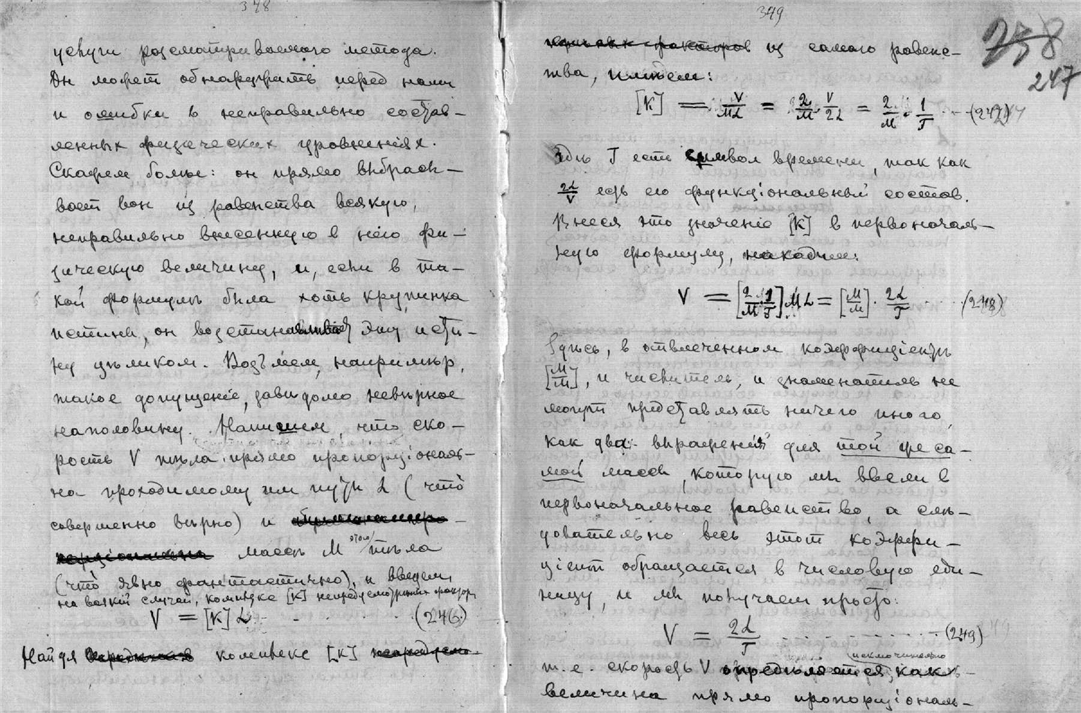 348
услуги разсматриваемаго метода.
Он может обнаружить перед нами
и ошибки в неправильно состав-
ленных физических уровненіях.
Скажем больше: он прямо выбрасы-
вает вон из равенства всякую,
неправильно внесенную в него фи-
зическую величину, и, если в та-
кой формулѣ была хоть крупинка
истины, он возстановит эту исти-
ну цѣликом. Возьмем, напримѣр,
такое допущеніе, завѣдомо невѣрное
наполовину. Напишем, что ско-
рость V тѣла прямо пропорціональ-
на проходимому им пути L (что
совершенно вѣрно) и
массѣ M этого тѣла
(что явно фантастично), и введем
на всякій случай, комплекс [K] непредусмотрѣнных факторов
V = [K] L (246)
Найдя комплекс [K]
349
258
247
из самого равенс-
тва, имѣем:
[K] = V/ML = 2/M · V/2L = 2/M · 1/T (247)
Здѣсь T есть символ времени, так как
2L/V есть его функціональный состав.
Внеся это значеніе [K] в первоначаль-
ную формулу, находим:
V = [2/M · 1/T] ML = [M/M] · 2L/T (248)
Здѣсь, в отвлеченном коэффиціентѣ
[M/M], и числитель, и знаменатель не
могут представлять ничего иного
как два выраженія для той же са-
мой массы, которую мы ввели в
первоначальное равенство, а слѣ-
довательно весь этот коэффи-
ціент обращается в числовую еди-
ницу, и мы получаем просто:
V = 2L/T (249)
исключительно
т. е. скорость V опредѣляется как
величина прямо пропорціональ-